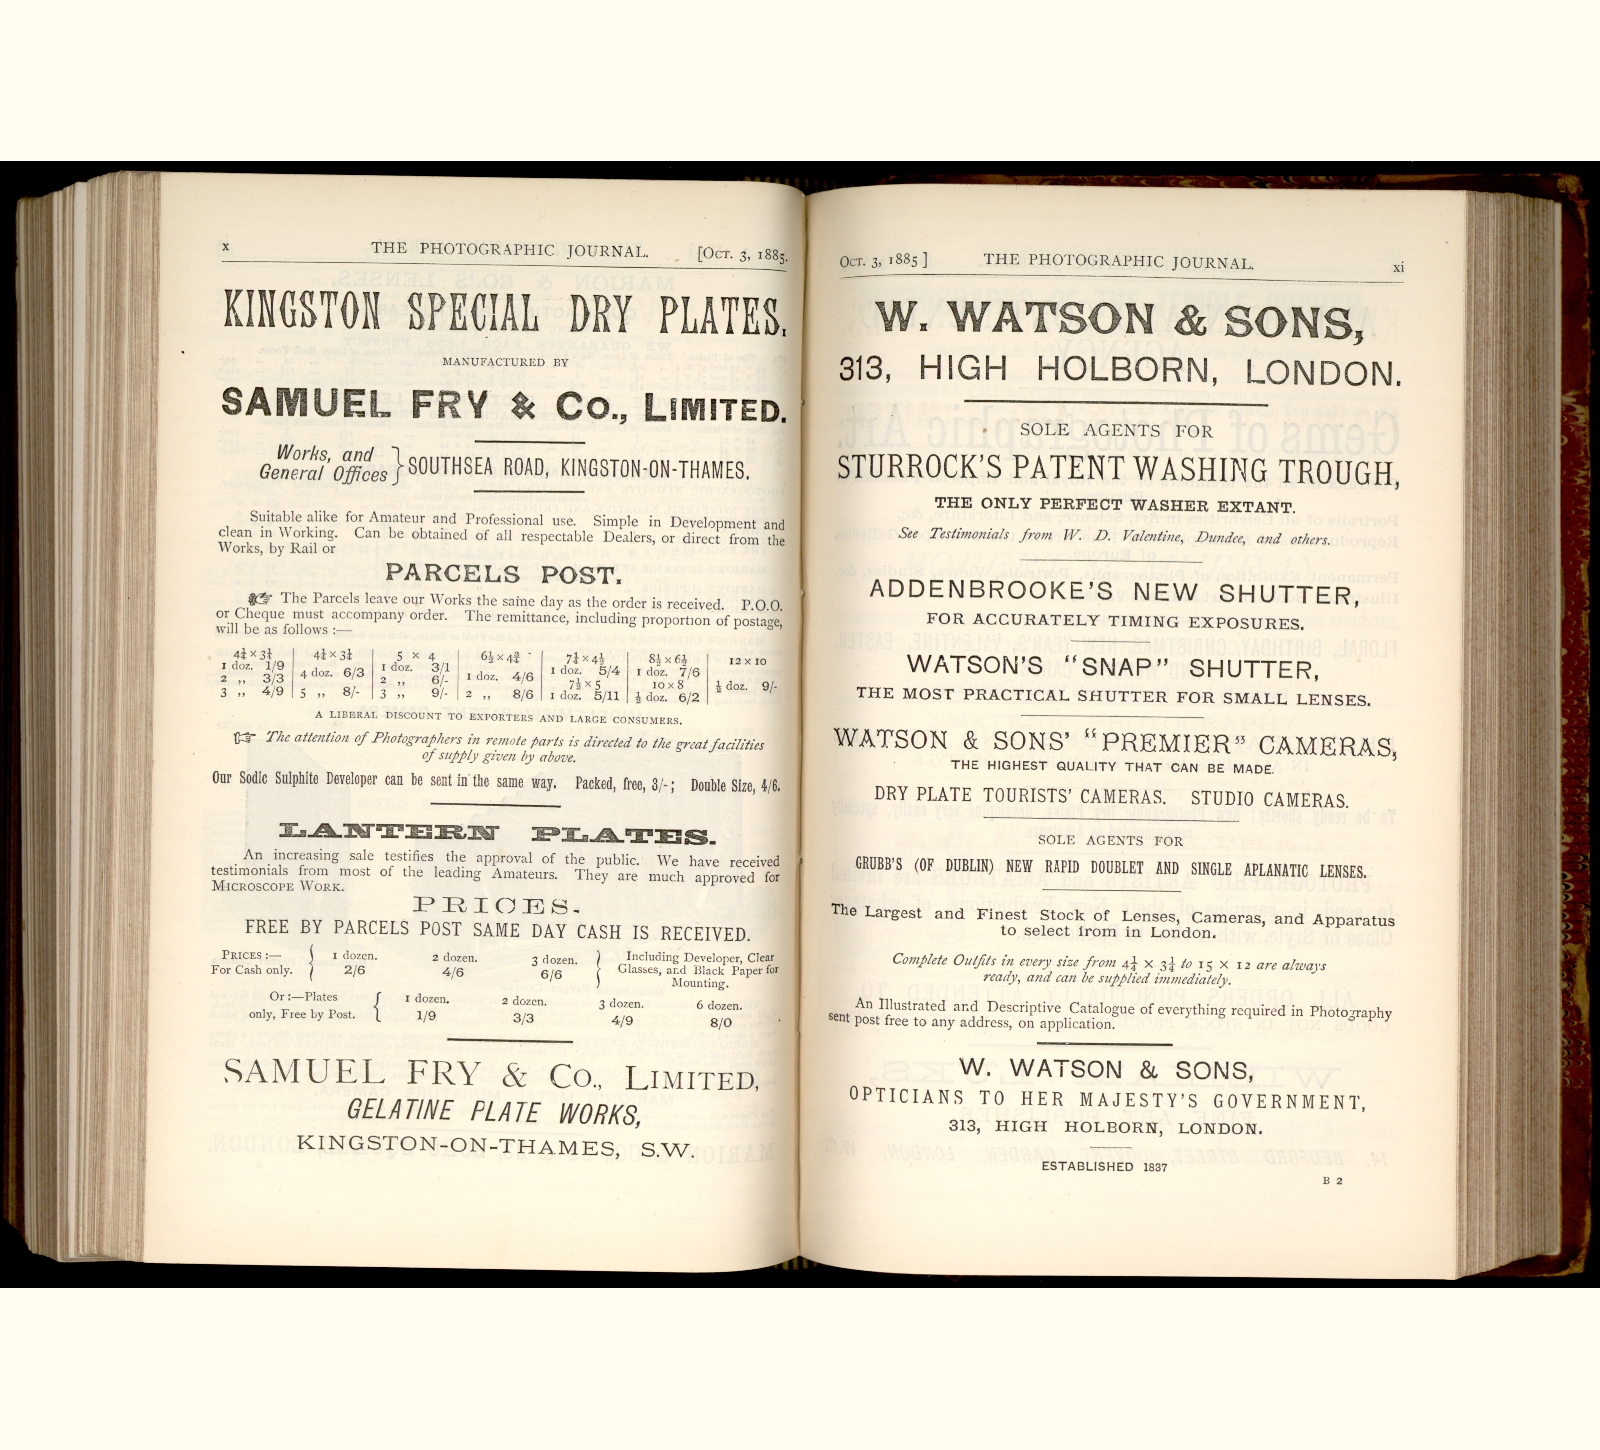 x THE PHOTOGRAPHIC JOURNAL. [Oct. 3, 1885.
KINGSTON SPECIAL DRY PLATES,
MANUFACTURED BY
SAMUEL FRY & Co., LIMITED.
Works, and
General Offices } SOUTHSEA ROAD, KINGSTON-ON-THAMES.
Suitable alike for Amateur and Professional use. Simple in Development and
clean in Working. Can be obtained of all respectable Dealers, or direct from the
Works, by Rail or
PARCELS POST.
☞ The Parcels leave our Works the same day as the order is received. P.O.O.
or Cheque must accompany order. The remittance, including proportion of postage,
will be as follows :—
4¼ × 3¼ | 4¼ × 3¼ | 5 × 4 | 6½ × 4¾ | 7¼ × 4½ | 8½ × 6½ | 12 × 10
1 doz. 1/9 | 4 doz. 6/3 | 1 doz. 3/1 | 1 doz. 4/6 | 1 doz. 5/4 | 1 doz. 7/6 | ½ doz. 9/-
2 „ 3/3 | 2 „ 6/- | 7½ × 5 | 10 × 8
3 „ 4/9 | 5 „ 8/- | 3 „ 9/- | 2 „ 8/6 | 1 doz. 5/11 | ½ doz. 6/2
A LIBERAL DISCOUNT TO EXPORTERS AND LARGE CONSUMERS.
☞ The attention of Photographers in remote parts is directed to the great facilities
of supply given by above.
Our Sodic Sulphite Developer can be sent in the same way. Packed, free, 3/- ; Double Size, 4/6.
LANTERN PLATES.
An increasing sale testifies the approval of the public. We have received
testimonials from most of the leading Amateurs. They are much approved for
MICROSCOPE WORK.
PRICES.
FREE BY PARCELS POST SAME DAY CASH IS RECEIVED.
PRICES :— { 1 dozen. 2 dozen. 3 dozen. } Including Developer, Clear
For Cash only. 2/6 4/6 6/6 Glasses, and Black Paper for
Mounting.
Or :—Plates { 1 dozen. 2 dozen. 3 dozen. 6 dozen.
only, Free by Post. 1/9 3/3 4/9 8/0
SAMUEL FRY & Co., LIMITED,
GELATINE PLATE WORKS,
KINGSTON-ON-THAMES, S.W.
Oct. 3, 1885 ] THE PHOTOGRAPHIC JOURNAL. xi
W. WATSON & SONS,
313, HIGH HOLBORN, LONDON.
SOLE AGENTS FOR
STURROCK'S PATENT WASHING TROUGH,
THE ONLY PERFECT WASHER EXTANT.
See Testimonials from W. D. Valentine, Dundee, and others.
ADDENBROOKE'S NEW SHUTTER,
FOR ACCURATELY TIMING EXPOSURES.
WATSON'S "SNAP" SHUTTER,
THE MOST PRACTICAL SHUTTER FOR SMALL LENSES.
WATSON & SONS' "PREMIER" CAMERAS,
THE HIGHEST QUALITY THAT CAN BE MADE.
DRY PLATE TOURISTS' CAMERAS. STUDIO CAMERAS.
SOLE AGENTS FOR
GRUBB'S (OF DUBLIN) NEW RAPID DOUBLET AND SINGLE APLANATIC LENSES.
The Largest and Finest Stock of Lenses, Cameras, and Apparatus
to select from in London.
Complete Outfits in every size from 4¼ × 3¼ to 15 × 12 are always
ready, and can be supplied immediately.
An Illustrated and Descriptive Catalogue of everything required in Photography
sent post free to any address, on application.
W. WATSON & SONS,
OPTICIANS TO HER MAJESTY'S GOVERNMENT,
313, HIGH HOLBORN, LONDON.
ESTABLISHED 1837
B 2